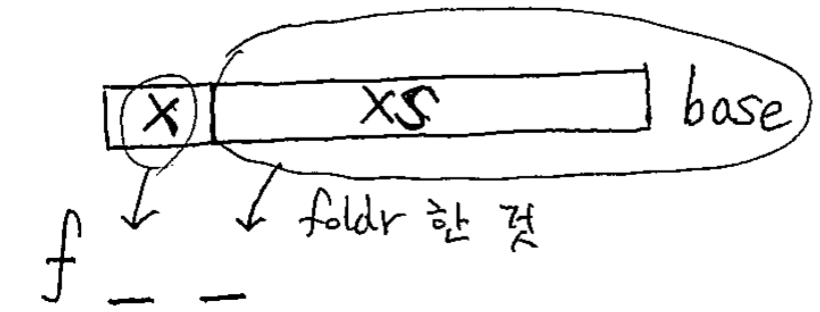 x xs base
foldr 한 것
f _ _